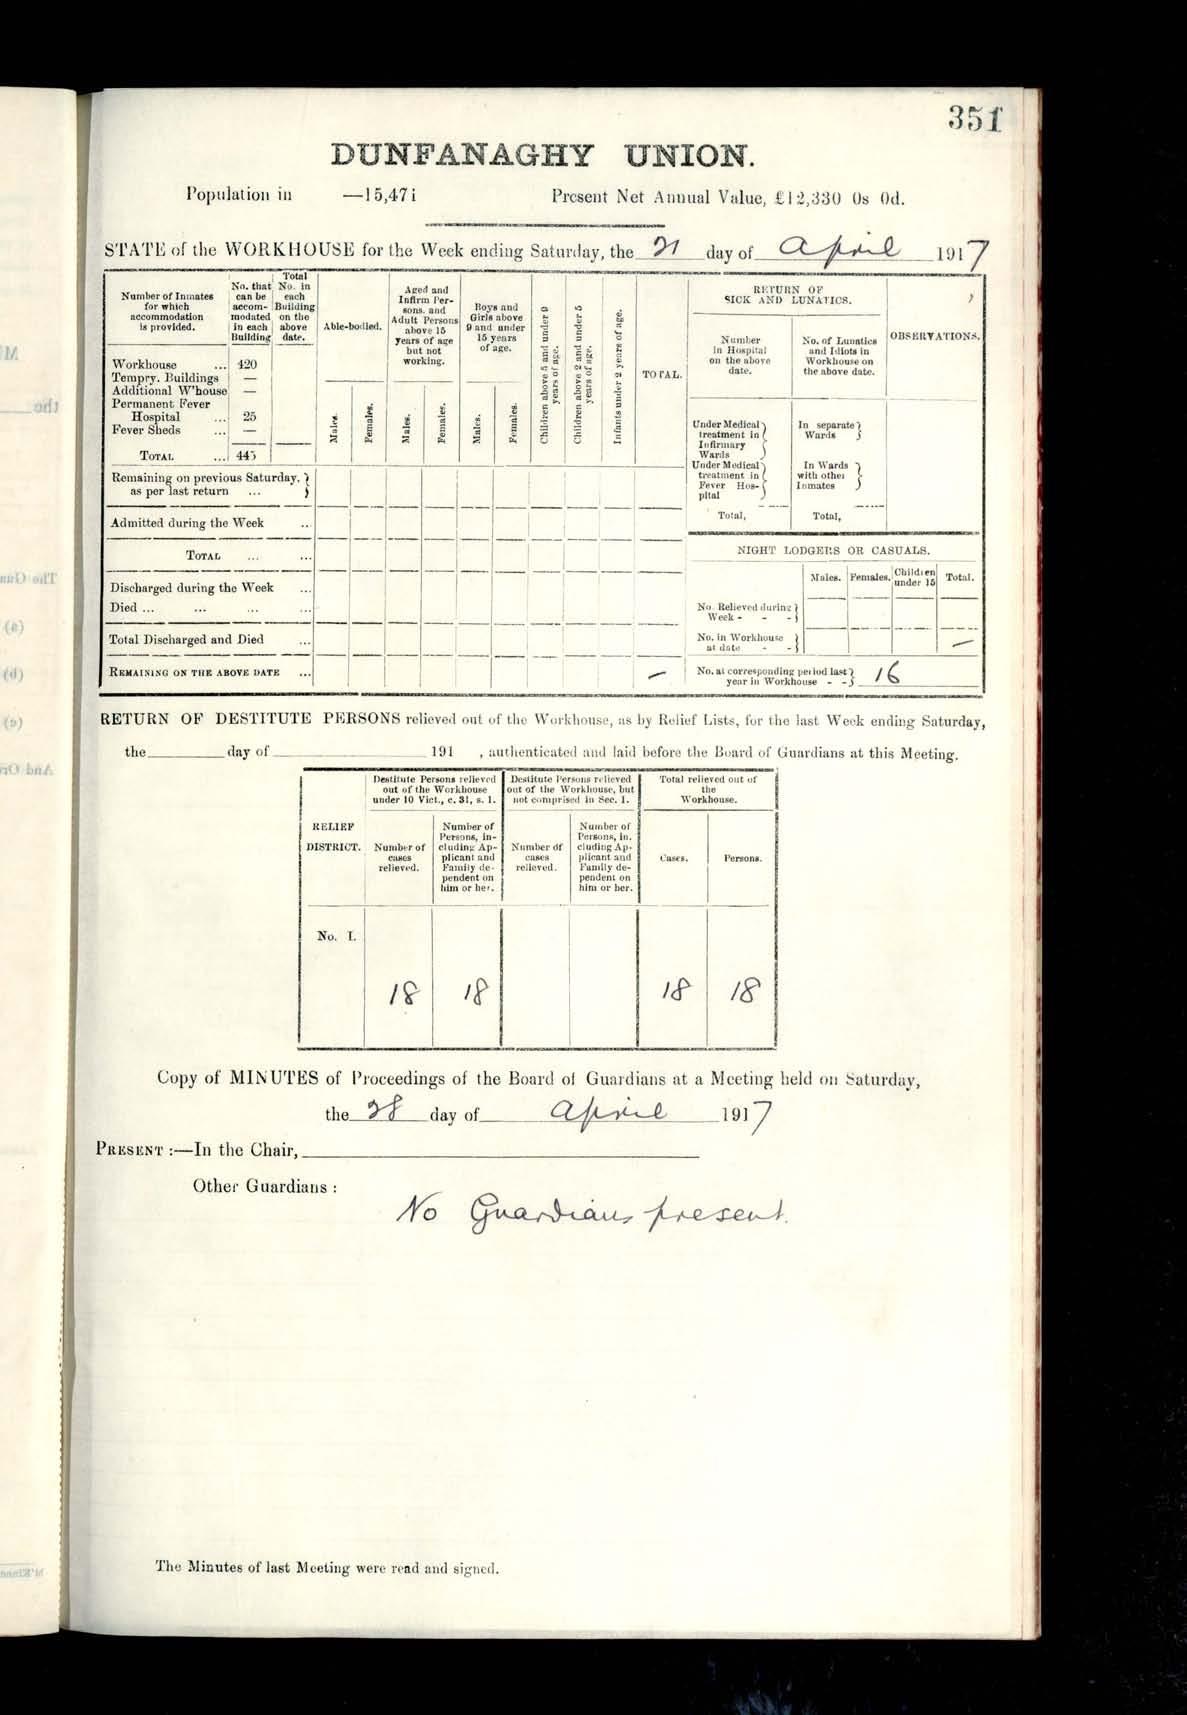 351
DUNFANAGHY UNION.
Population in —15,471 Present Net Annual Value, £12,330 0s 0d.
STATE of the WORKHOUSE for the Week ending Saturday, the 21 day of April 1917
Number of Inmates
for which
accommodation
is provided.
No. that
can be
accom-
modated
in each
Building
Total
No. in
each
Building
on the
above
date.
Able-bodied.
Aged and
Infirm Per-
sons. and
Adult Persons
above 15
years of age
but not
working.
Boys and
Girls above
9 and under
15 years
of age.
Children above 5 and under 9
years of age.
Children above 2 and under 5
years of age.
Infants under 2 years of age.
TOTAL.
RETURN OF
SICK AND LUNATICS.
Number
in Hospital
on the above
date.
No. of Lunatics
and Idiots in
Workhouse on
the above date.
OBSERVATIONS.
Workhouse ... 420
Tempry. Buildings —
Additional W'house —
Permanent Fever
Hospital ... 25
Fever Sheds ... —
TOTAL ... 445
Males. Females. Males. Females. Males. Females.
Under Medical
treatment in
Infirmary
Wards
Under Medical
treatment in
Fever Hos-
pital
Total,
In separate
Wards
In Wards
with other
Inmates
Total,
Remaining on previous Saturday.
as per last return ...
Admitted during the Week ...
TOTAL ... ...
Discharged during the Week ...
Died ... ... ... ...
Total Discharged and Died ...
REMAINING ON THE ABOVE DATE ... —
NIGHT LODGERS OR CASUALS.
Males. Females. Children
under 15 Total.
No. Relieved during
Week - - -
No. in Workhouse
at date - - —
No. at corresponding period last
year in Workhouse - - 16
RETURN OF DESTITUTE PERSONS relieved out of the Workhouse, as by Relief Lists, for the last Week ending Saturday,
the day of 191 , authenticated and laid before the Board of Guardians at this Meeting.
RELIEF
DISTRICT.
Destitute Persons relieved
out of the Workhouse
under 10 Vict., c. 31, s. 1.
Destitute Persons relieved
out of the Workhouse, but
not comprised in Sec. 1.
Total relieved out of
the
Workhouse.
Number of
cases
relieved.
Number of
Persons, in-
cluding Ap-
plicant and
Family de-
pendent on
him or her.
Number of
cases
relieved.
Number of
Persons, in.
cluding Ap-
plicant and
Family de-
pendent on
him or her.
Cases.
Persons.
No. I.
18 18 18 18
Copy of MINUTES of Proceedings of the Board of Guardians at a Meeting held on Saturday,
the 28 day of April 1917
PRESENT :—In the Chair,
Other Guardians :
No Guardians present.
The Minutes of last Meeting were read and signed.